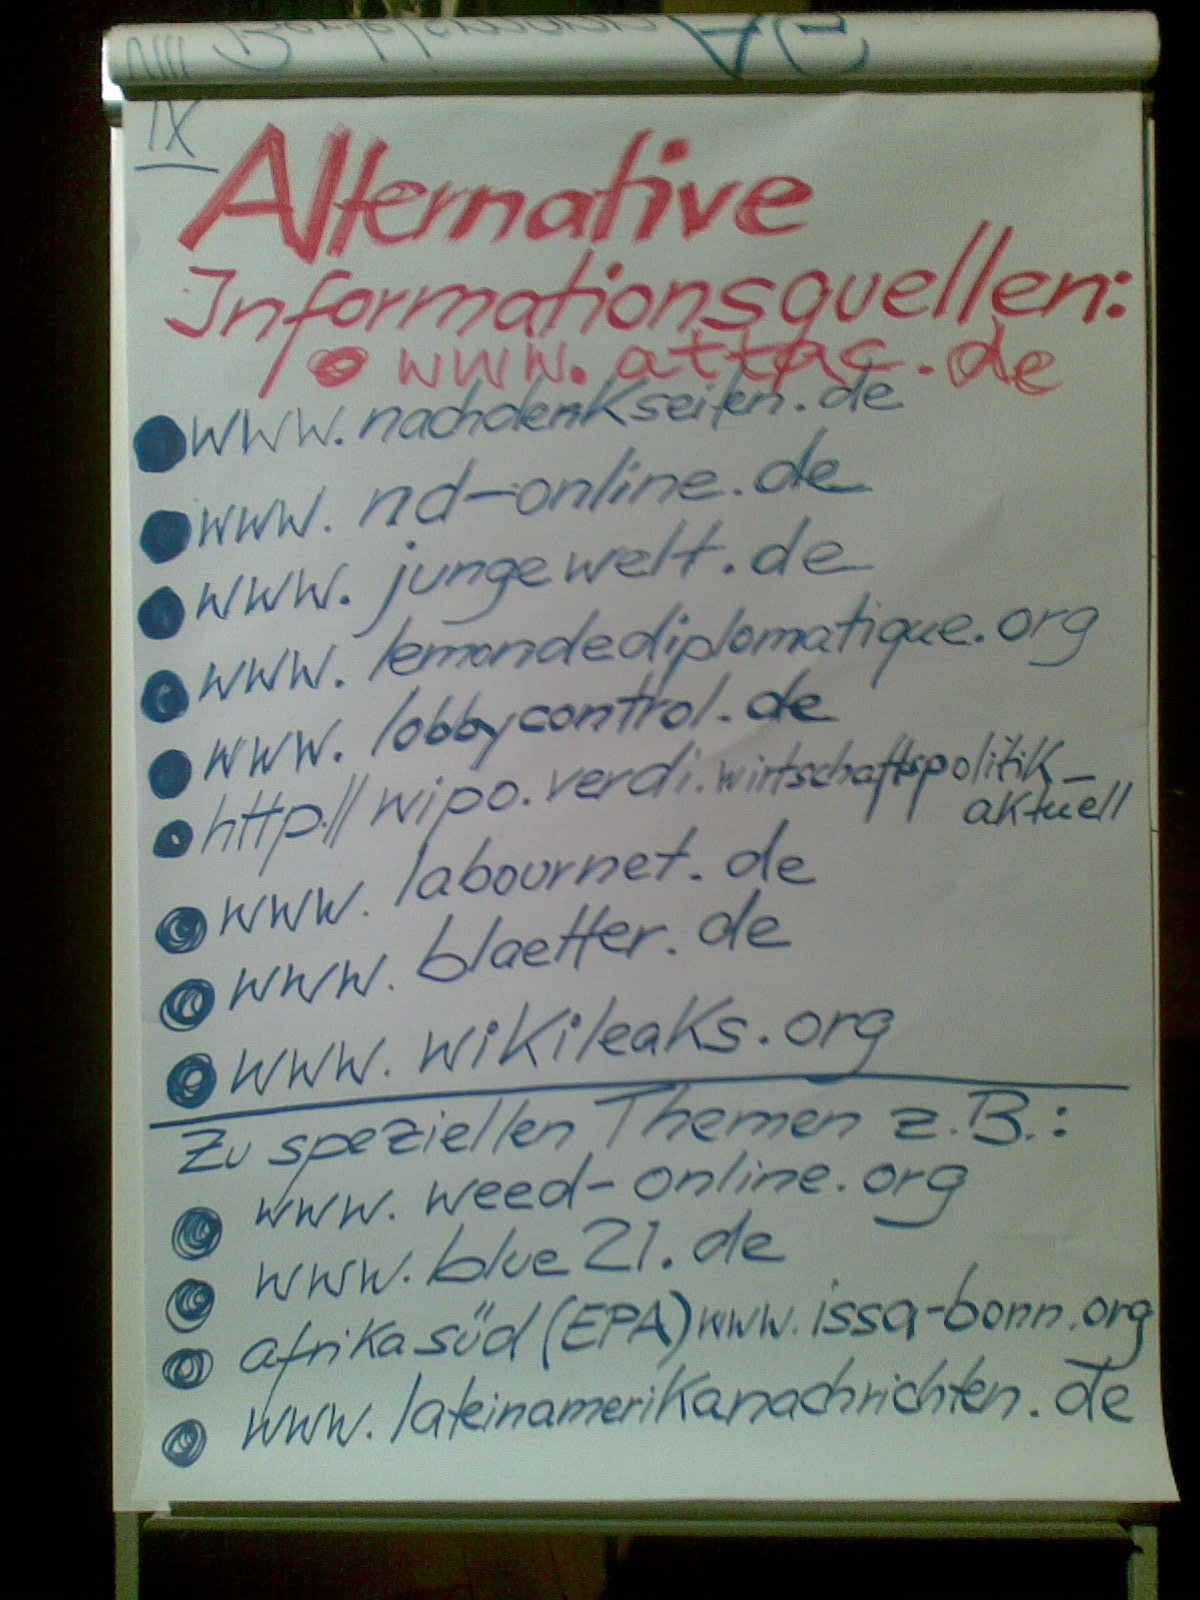 IX
Alternative
Informationsquellen:
www.attac.de
www.nachdenkseiten.de
www.nd-online.de
www.jungewelt.de
www.lemondediplomatique.org
www.lobbycontrol.de
http//wipo.verdi.wirtschaftspolitik-
aktuell
www.labournet.de
www.blaetter.de
www.wikileaks.org
Zu speziellen Themen z.B.:
www.weed-online.org
www.blue21.de
afrika süd (EPA) www.issa-bonn.org
www.lateinamerikanachrichten.de